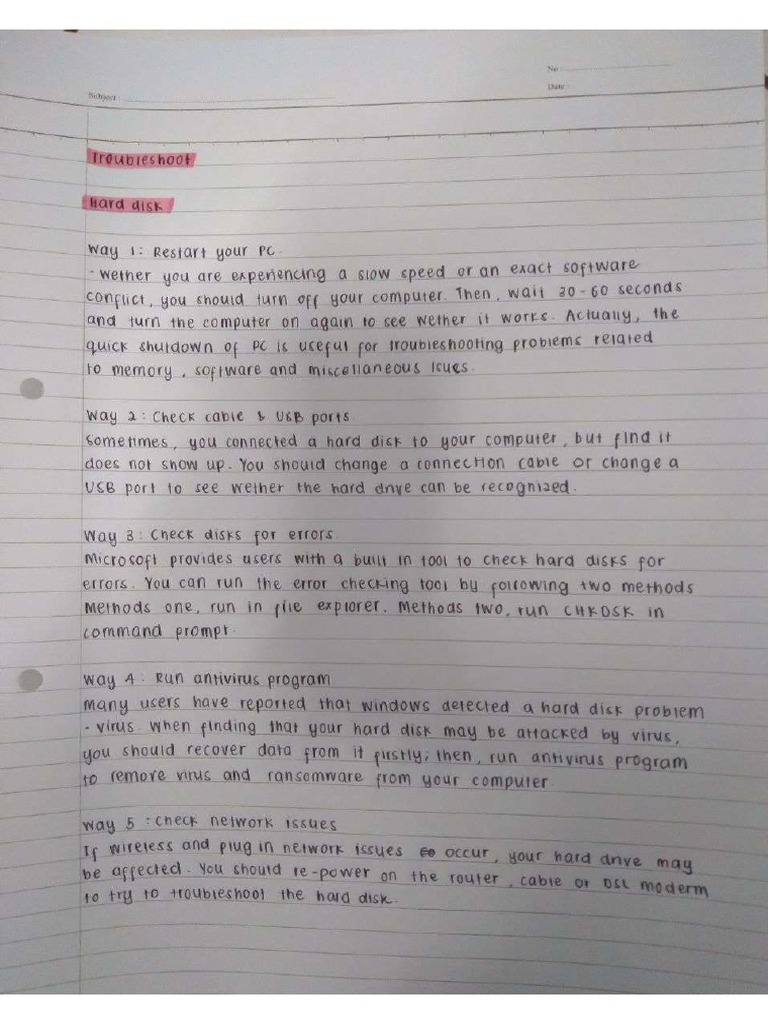 No :
Subject :
Date :
Troubleshoot
Hard disk
Way 1: Restart your PC.
- Wether you are experiencing a slow speed or an exact software
conflict, you should turn off your computer. Then, wait 30-60 seconds
and turn the computer on again to see wether it works. Actually, the
quick shutdown of PC is useful for troubleshooting problems related
to memory, software and miscellaneous isues.
Way 2: Check cable & USB ports.
Sometimes, you connected a hard disk to your computer, but find it
does not show up. You should change a connection cable or change a
USB port to see wether the hard drive can be recognized.
Way 3: Check disks for errors.
Microsoft provides users with a built in tool to check hard disks for
errors. You can run the error checking tool by following two methods
Methods one, run in file explorer. Methods two, run CHKDSK in
command prompt.
Way 4: Run antivirus program
Many users have reported that windows detected a hard disk problem
- virus. When finding that your hard disk may be attacked by virus,
you should recover data from it firstly; then, run antivirus program
to remove virus and ransomware from your computer.
Way 5 : Check network issues
If wireless and plug in network issues occur, your hard drive may
be affected. You should re-power on the router, cable or DSL moderm
to try to troubleshoot the hard disk.